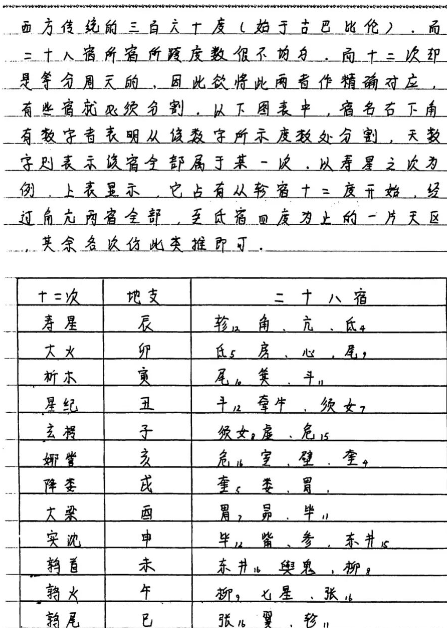 西方传统的三百六十度(始于古巴比伦).而
二十八宿所宿所跨度数很不均匀.而十二次却
是等分周天的.因此欲将此两者作精确对应,
有些宿就必须分割.以下图表中,宿名右下角
有数字者表明从该数字所示度数处分割,无数
字则表示该宿全部属于某一次.以寿星之次为
例.上表显示,它占有从轸宿十二度开始,经
过角亢两宿全部,至氐宿四度为止的一片天区
,其余各次仿此类推即可.
十二次 地支 二十八宿
寿星 辰 轸12 角、亢、氐4
大火 卯 氐5 房、心、尾9
析木 寅 尾10 箕、斗11
星纪 丑 斗12 牵牛、须女7
玄枵 子 须女8 虚、危15
娵訾 亥 危16 室、壁、奎4
降娄 戌 奎5 娄、胃
大梁 酉 胃7 昴、毕11
实沈 申 毕12 觜、参、东井15
鹑首 未 东井16 舆鬼、柳8
鹑火 午 柳9 七星、张16
鹑尾 巳 张16 翼、轸11